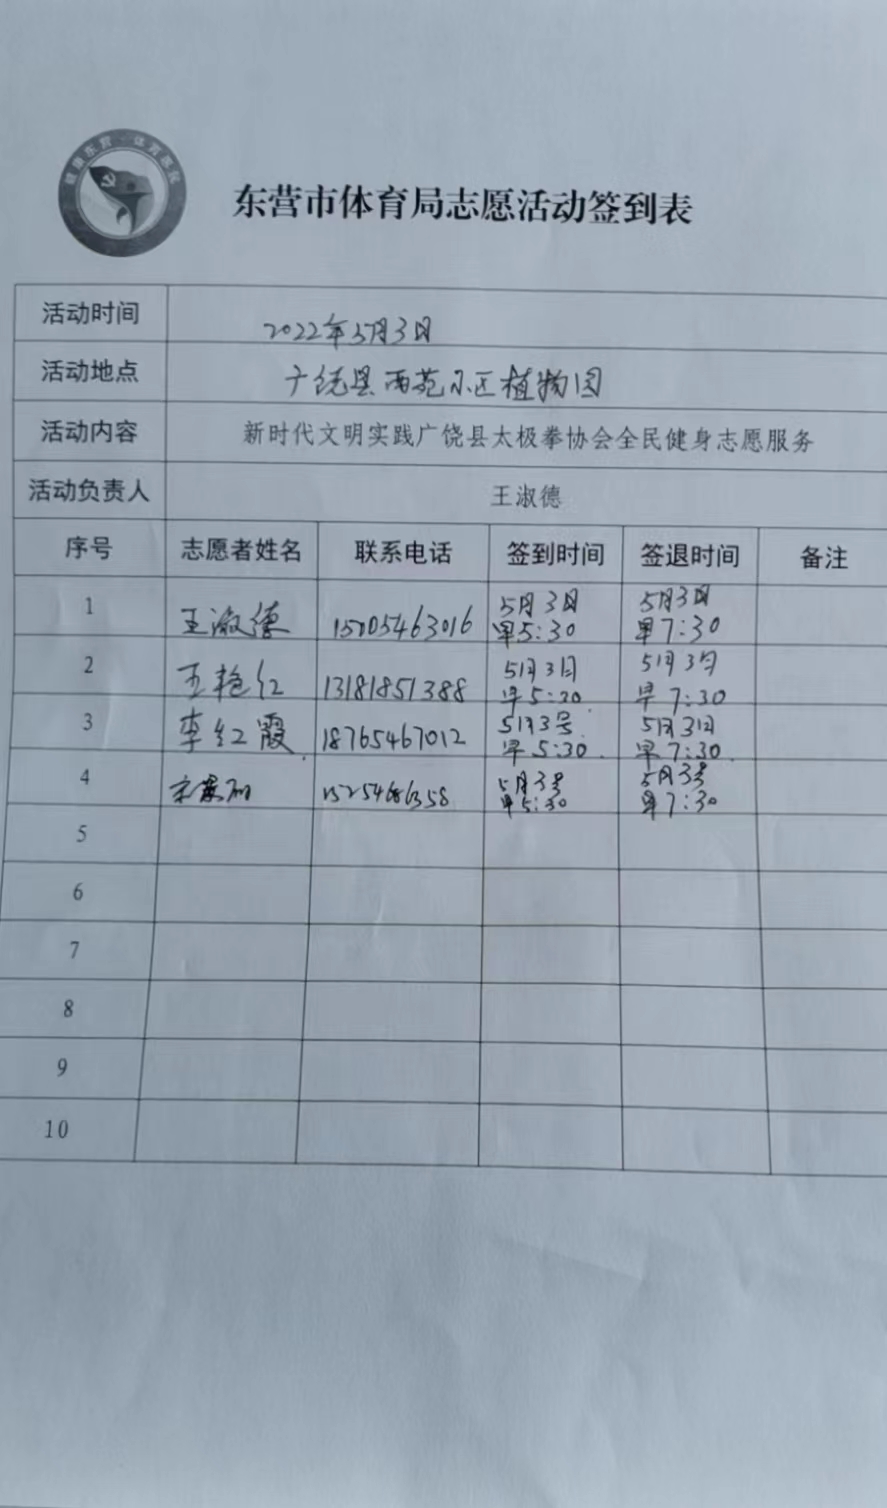 健康东营·体育惠民
东营市体育局志愿活动签到表
活动时间 2022年5月3日
活动地点 广饶县西苑小区植物园
活动内容 新时代文明实践广饶县太极拳协会全民健身志愿服务
活动负责人 王淑德
序号 志愿者姓名 联系电话 签到时间 签退时间 备注
1 王淑德 15005463016 5月3日 早5:30 5月3日 早7:30
2 王艳红 13181851388 5月3日 早5:30 5月3日 早7:30
3 李红霞 18765467012 5月3号 早5:30 5月3日 早7:30
4 5月3号 早5:30 5月3号 早7:30
5
6
7
8
9
10